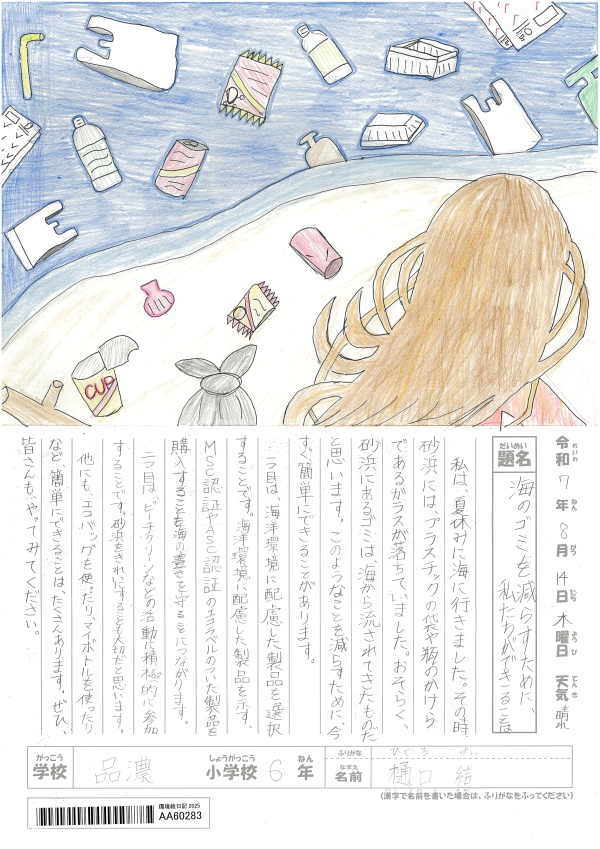 CUP
令和7年8月14日木曜日 天気 晴れ
れいわ ねん がつ にち ようび てんき
だいめい
題名 海のゴミを減らすために、
私たちができること
私は、夏休みに海に行きました。その時、
砂浜には、プラスチックの袋や瓶のかけら
であるガラスが落ちていました。おそらく、
砂浜にあるゴミは、海から流されてきたものだ
と思います。このようなことを減らすために、今
すぐ簡単にできることがあります。
一つ目は、海洋環境に配慮した製品を選択
することです。海洋環境に配慮した製品を示す、
MSC認証やASC認証のエコラベルのついた製品を
購入することも海の豊さを守ることにつながります。
二つ目は、ビーチクリーンなどの活動に積極的に参加
することです。砂浜をきれいにすることも大切だと思います。
他にも、エコバッグを使ったり、マイボトルを使ったり
など、簡単にできることは、たくさんあります。ぜひ、
皆さんも、やってみてください。
がっこう しょうがっこう ねん ふりがな ひぐち ゆい
学校 品濃 小学校 6年 なまえ 名前 樋口 結
(漢字で名前を書いた場合は、ふりがなをふってください)
環境絵日記 2025
AA60283